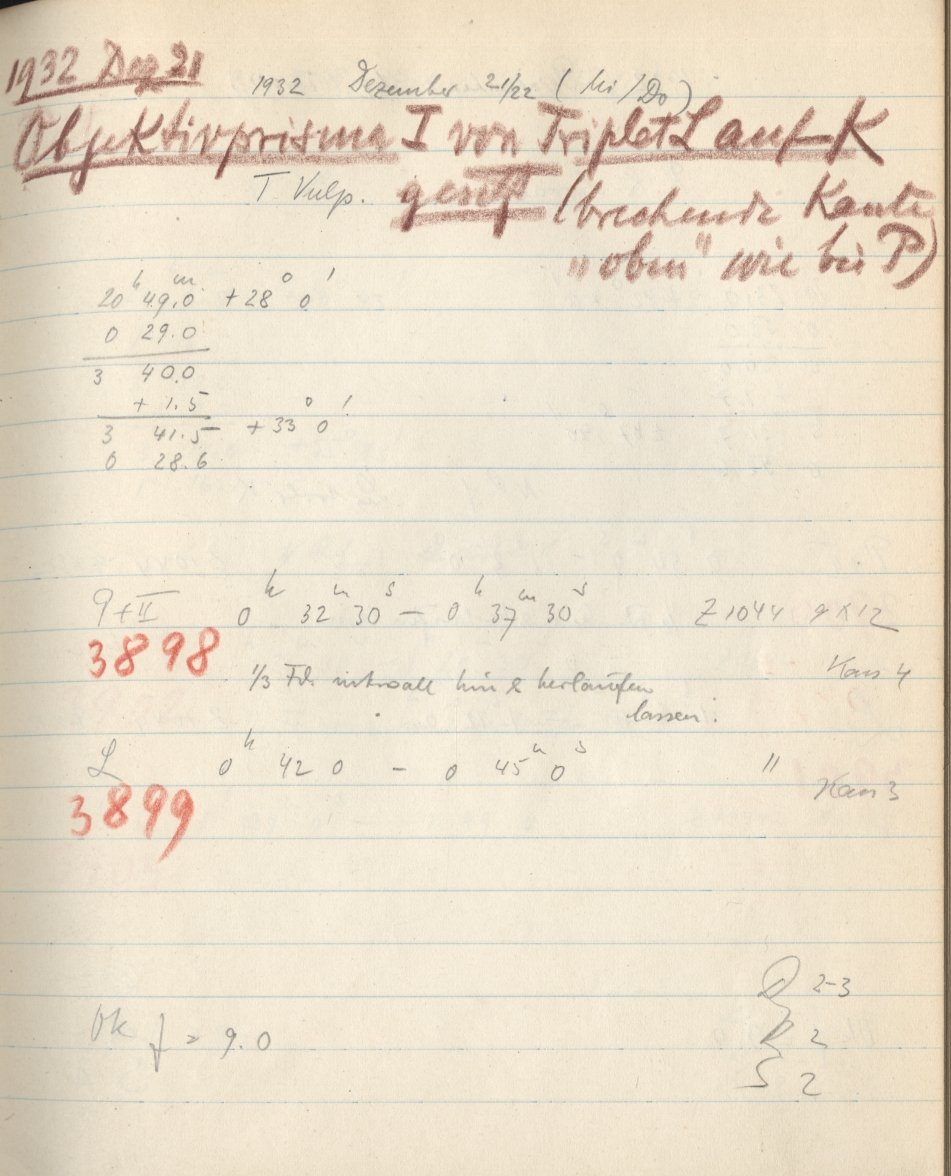 1932 Dez 21
1932 Dezember 21/22 (Mi/Do)
Objektivprisma I von Triplet L auf K
T Vulp. gesetzt (brechende Kante
„oben" wie bei P)
20h 49.0m + 28° 0'
0 29.0
3 40.0
+ 1.5
3 41.5 + 33° 0'
0 28.6
P+II 0h 32m 30s – 0h 37m 30s Z 1044 9x12
3898
Kas 4
1/3 Fd. intervall hin & herlaufen
lassen.
L 0h 42 0 – 0 45m 0s "
3899
Kas 3
2-3
Ok f = 9.0 R 2
S 2